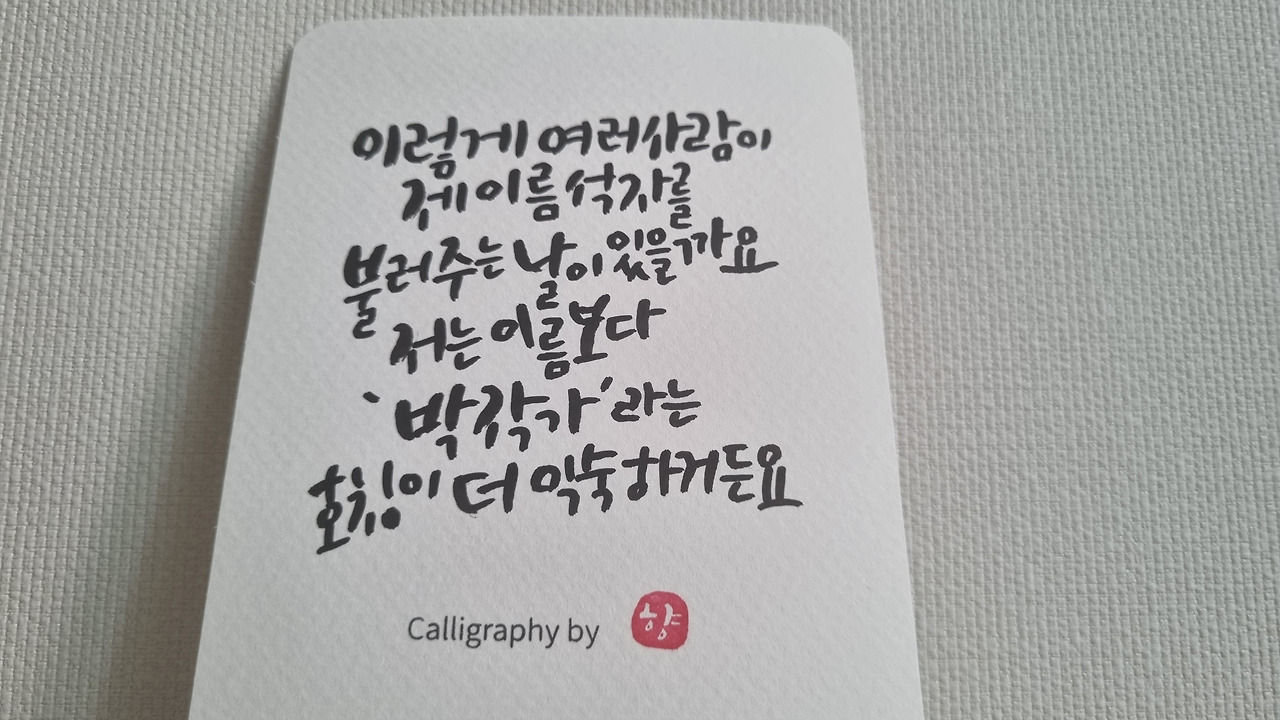 이렇게 여러사람이
제 이름 석자를
불러주는 날이 있을까요
저는 이름보다
'박각가'라는
호칭이 더 익숙하거든요
Calligraphy by 향